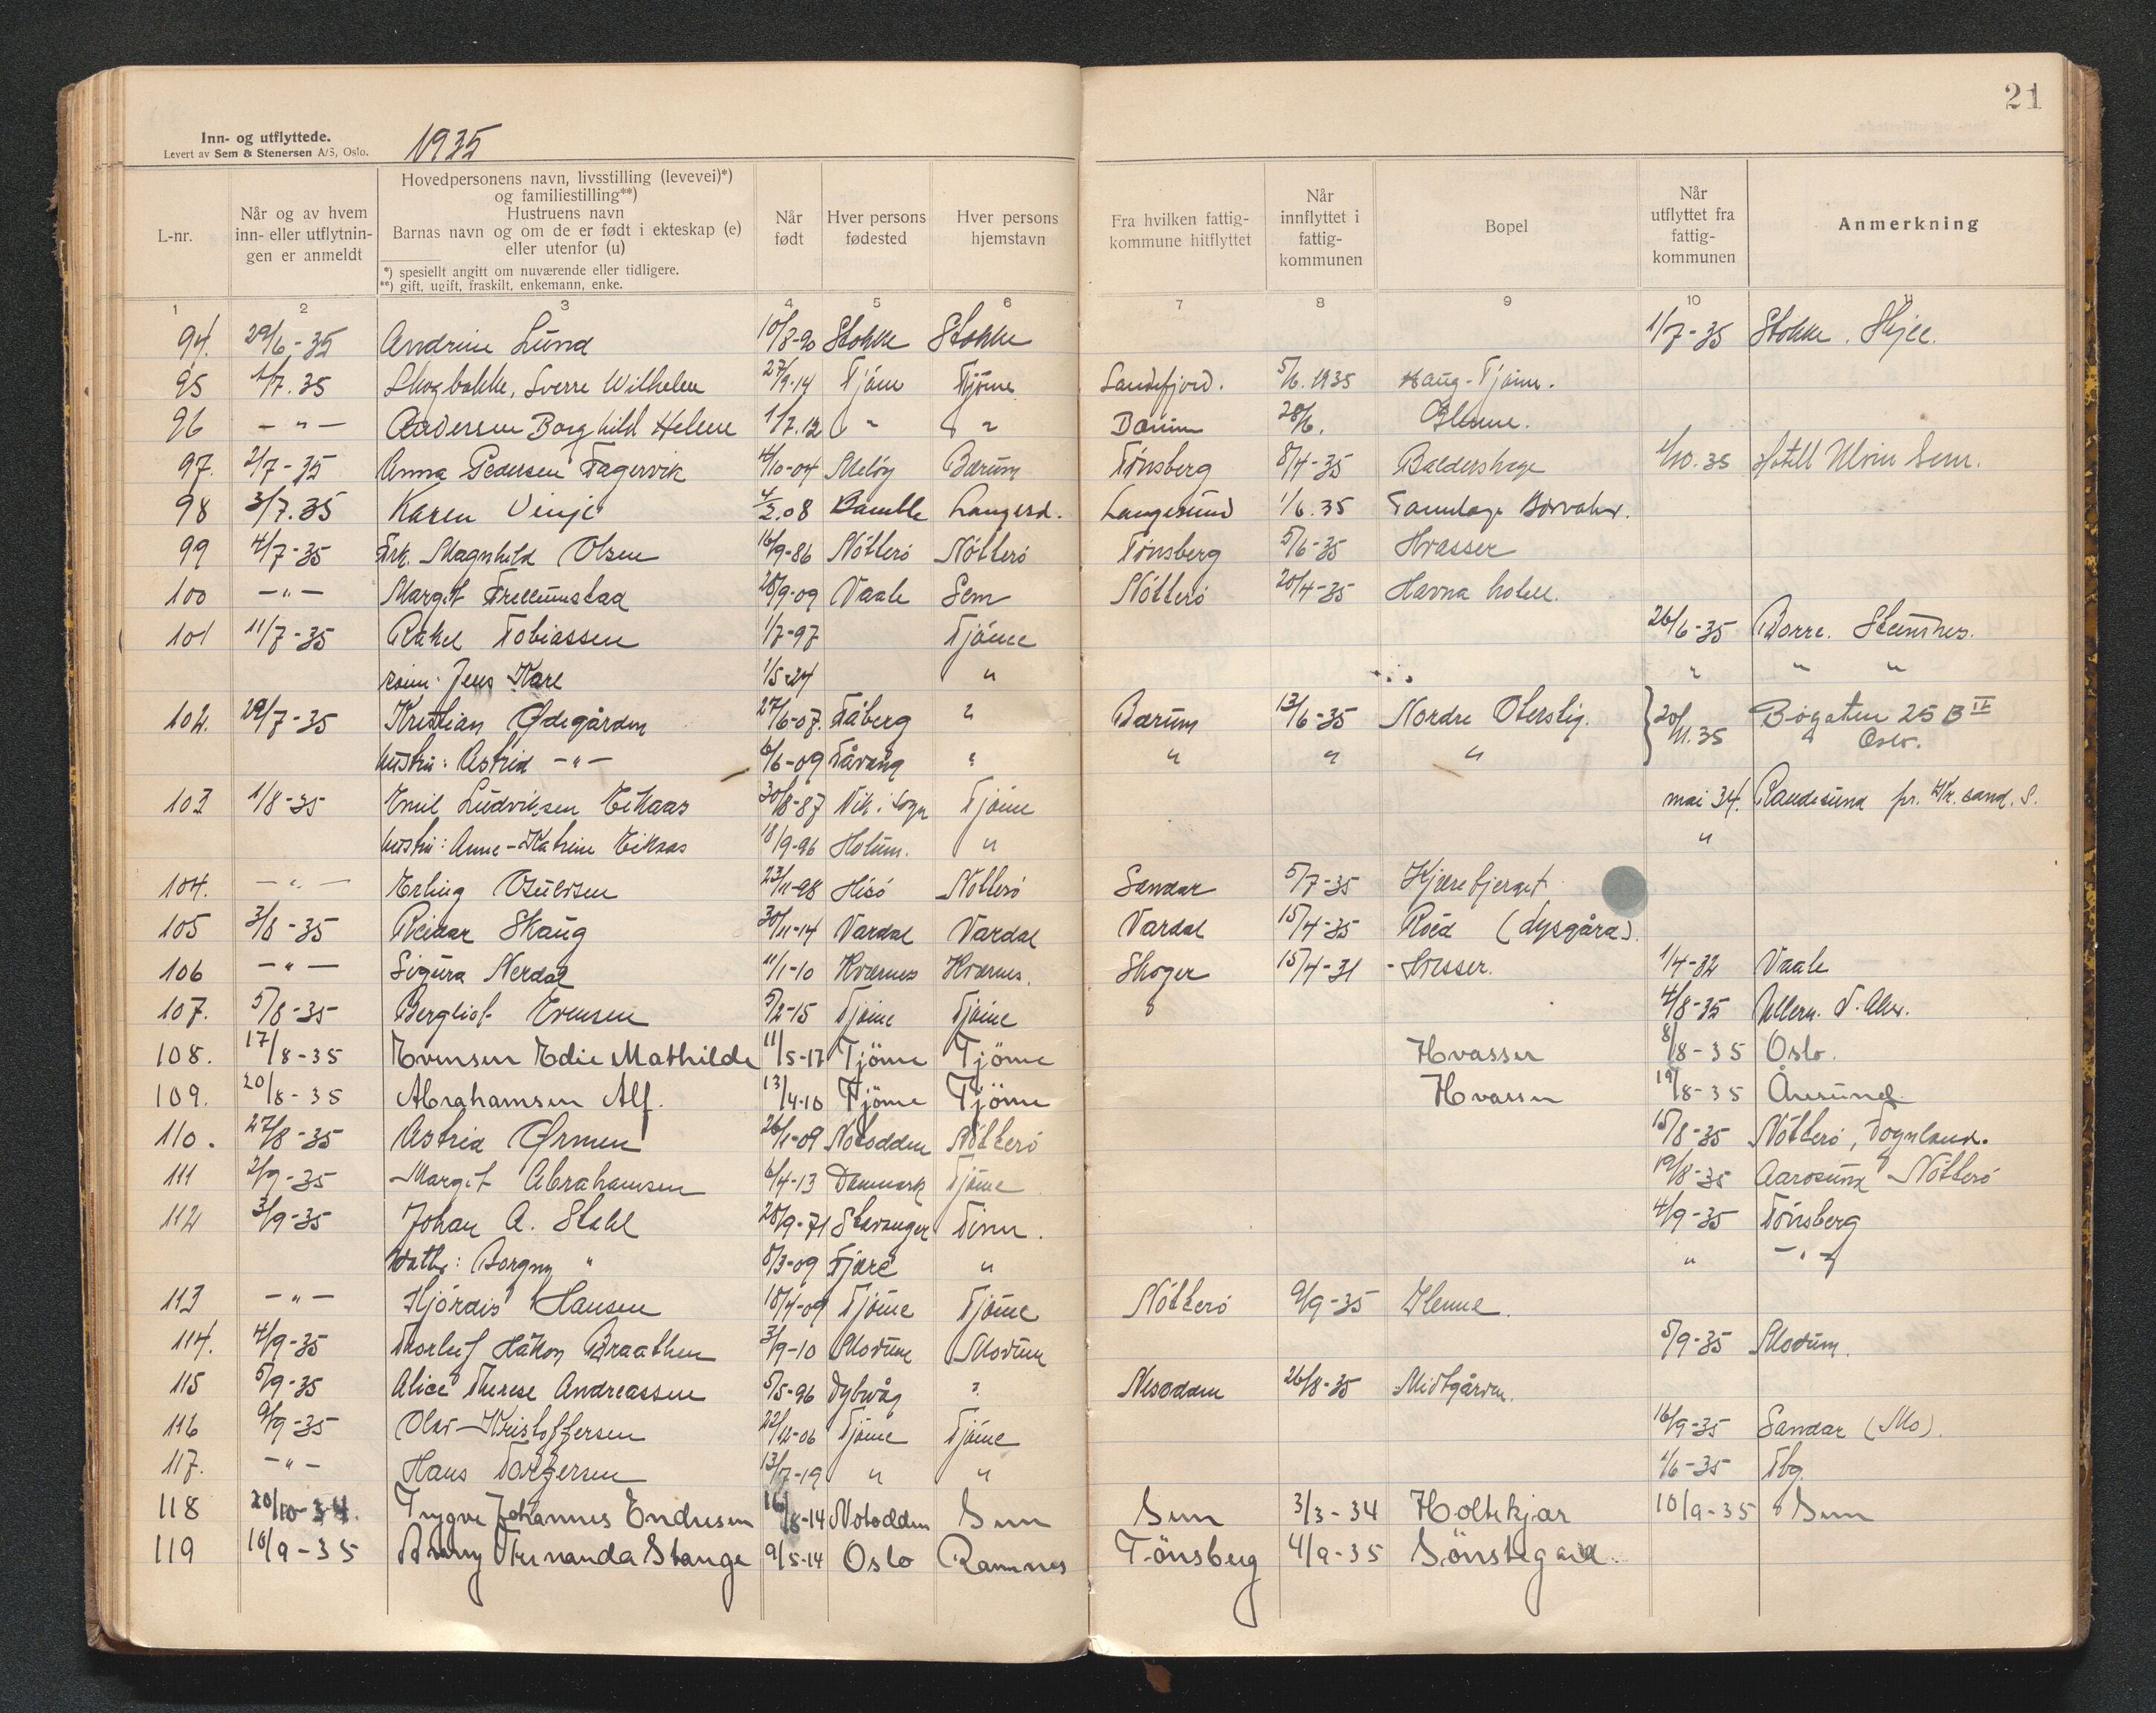 21
Inn- og utflyttede.
Levert av Sem & Stenersen A/S, Oslo.
1935
L-nr.
Når og av hvem inn- eller utflytnin-gen er anmeldt
Hovedpersonens navn, livsstilling (levevei)*) og familiestilling**)
Hustruens navn
Barnas navn og om de er født i ekteskap (e) eller utenfor (u)
*) spesiellt angitt om nuværende eller tidligere.
**) gift, ugift, fraskilt, enkemann, enke.
Når født
Hver persons fødested
Hver persons hjemstavn
Fra hvilken fattig-kommune hitflyttet
Når innflyttet i fattig-kommunen
Bopel
Når utflyttet fra fattig-kommunen
Anmerkning
1 2 3 4 5 6 7 8 9 10 11
94. 29/6-35 Andrine Lund 10/8-90 Stokke Stokke 1/7-35 Stokke. Skjee.
95 1/7.35 Skogbakke, Sverre Wilhelm 27/9-14 Tjöm Tjöme Sandefjord. 5/6.1935 Haug-Tjöm.
96 -"- Andersen Borghild Helene 1/7.12 " " Bærum 28/6. Glenne.
97. 2/7-35 Anna Pedersen Fagervik 4/10-04 Meløy Bærum Tönsberg 8/4-35 Baldershage 1/10.35 Hotell Sem.
98 3/7.35 Karen Vinje 4/2.08 Bamble Langesd. Langesund 1/6.35
99 4/7-35 Frk. Magnhild Olsen 16/9-86 Nötterö Nötterö Tönsberg 5/6-35 Hvasser
100 -"- Margit Trellumstad 28/9-09 Vaale Sem Nötterö 20/4-35 Havna hotell.
101 11/7-35 Rakel Tobiassen 1/7-97 Tjöme 26/6-35 Borre.
sönn: Jens Kare 1/5-24 " " " "
102. 29/7-35 Kristian Ødegården 27/6-07. Fåberg " Bærum 13/6-35 Nordre Oterstig. 20/11.35 Bogaten 25 B IV
Oslo.
hustru: Astrid -"- 6/6-09 Fåvang " " " "
103 1/8-35 Emil Ludviksen Eikaas 30/8-87 Vik i Sogn Tjöme mai 34. Randesund pr. Kr. sand. S.
hustru: Anne-Katrine Eikaas 18/9-96 Holum. " "
104. -"- Erling 23/11-98 Hisö Nötterö Sandar 5/7-35 Kjærefjerget
105 3/8-35 Reidar Skaug 30/11-14 Vardal Vardal Vardal 15/4-35 Röed (dysgård).
106 -"- Sigurd Nerdal 11/1-10 Kværnes Kværnes. Skoger 15/4-31 1/4-32 Vaale
107. 5/8-35 Bergliot Evensen 5/2-15 Tjöme Tjöme 4/8-35 Ullern. V. Aker.
108. 17/8-35 Evensen Edie Mathilde 11/5-17 Tjöme Tjöme Hvasser 8/8-35 Oslo.
109. 20/8-35 Abrahamsen Alf. 13/4-10 Tjöme Tjöme Hvasser 19/8-35 Årøsund.
110. 27/8-35 Astrid Ørmen 26/1-09 Notodden Nötterö 15/8-35 Nötterö,
111 2/9-35 Margit Abrahamsen 6/4-13 Danmark Tjöme 19/8-35 Aarosund Nötterö
112 3/9-35 Johan A. Stahl 28/9-71 Stavanger 4/9-35 Tönsberg
datter: Borgny " 8/3-09 Fjære " " -"-
113 -"- Hjördis Hansen 18/4-09 Tjöme Tjöme Nötterö 9/9-35 Glenne.
114. 4/9-35 Thorleif Håkon Braathen 3/9-10 Modum Modum 5/9-35 Modum.
115 5/9-35 Alice Therese Andreassen 5/5-96 Dybvåg ? Nesodden 26/8-35 Midtgården.
116 9/9-35 Olav Kristoffersen 22/12-06 Tjöme Tjöme 16/9-35 Sandar (Mo).
117. -"- Hans Torgersen 13/7-19 " " 1/6-35 Tbg.
118 20/10-34. Trygve Johannes Endresen 16/8-14 Notodden Sem Sem 3/3-34 Holtekjær 10/9-35 Sem
119 10/9-35 Fernanda Stange 9/5-14 Oslo Ramnes Tönsberg 4/9-35 Sönstegard.